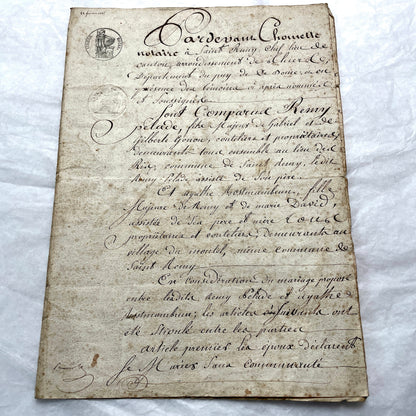 Pardevant Chomette
notaire à Saint Remy chef lieu de
canton, arrondissement de Thiers,
Département du puy de Dome, et en
présence des témoins ci après nommés
et soussignés
Sont Comparus Remy
pelade, fils Majeur de Gabriel et de
Gilberte Gonon, coutelier et propriétaires,
demeurants tous ensemble au lieu de
commune de Saint Remy, ledit
Remy assisté de Son père.
Et agathe fille
Majeure de Remy et de marie David
assistée de Ses père et mère tous
propriétaires et couteliers demeurants au
village du montel, même commune de
Saint Remy.
En Considération du mariage proposé
entre lesdits remy et agathe
les articles suivants ont
été Stipulé entre les parties
article premier les époux déclarent
Se Marier Sans communauté